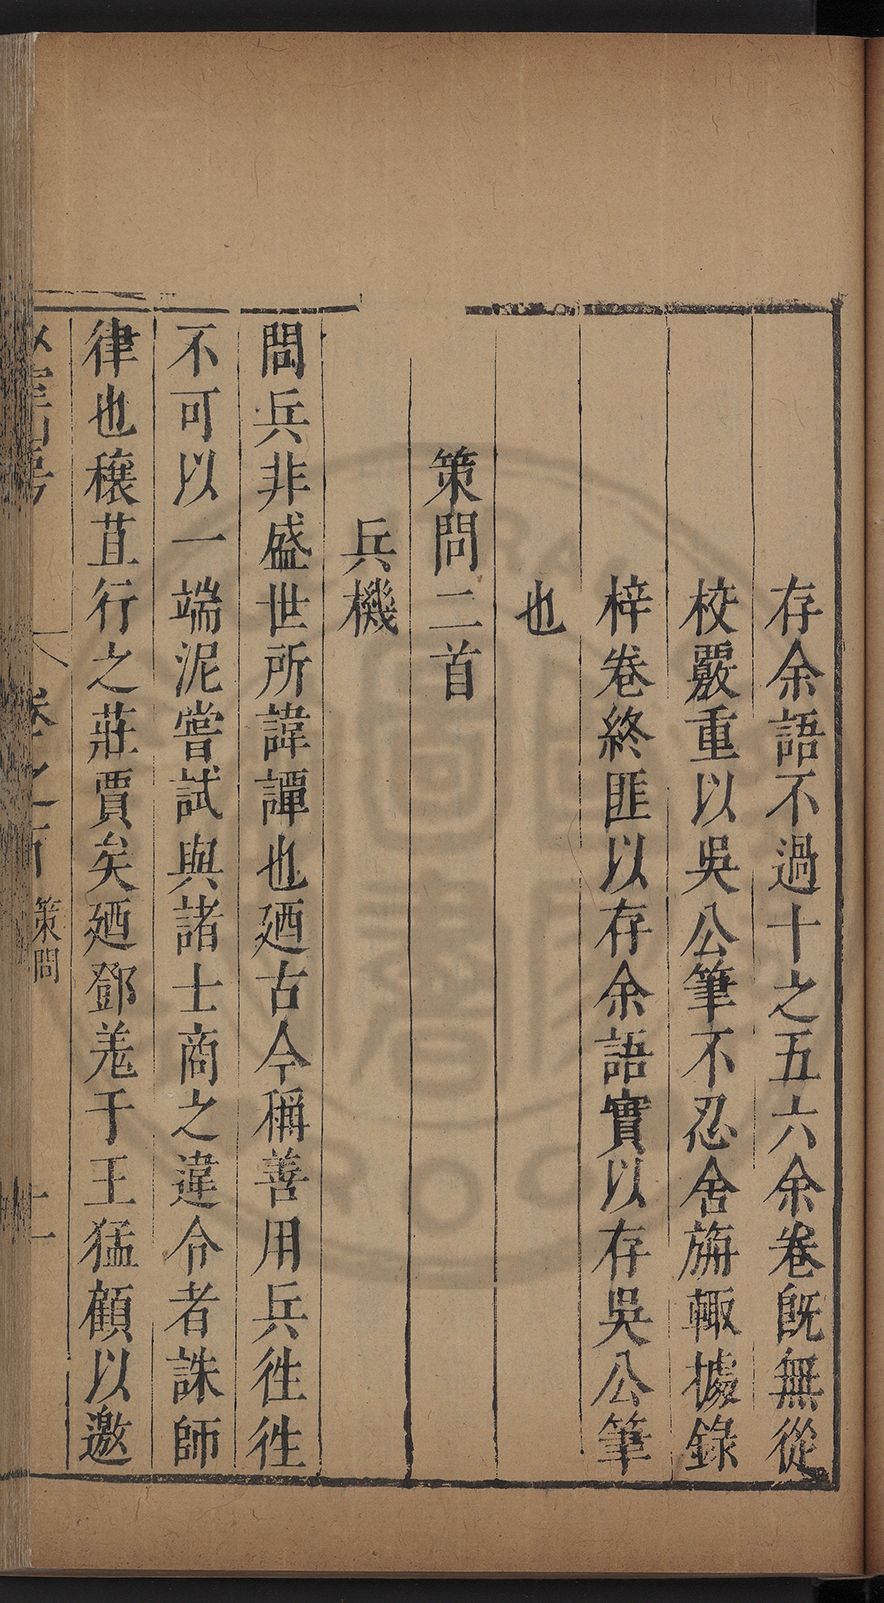 存余語不過十之五六余卷旣無從
校覈重以吳公筆不忍舍旃輙據錄
梓卷終匪以存余語實以存吳公筆
也
策問二首
兵機
問兵非盛世所諱譚也廼古今稱善用兵徃徃
不可以一端泥嘗試與諸士商之違令者誅師
律也穰苴行之莊賈矣廼鄧羌于王猛顧以邀
卷之
策問